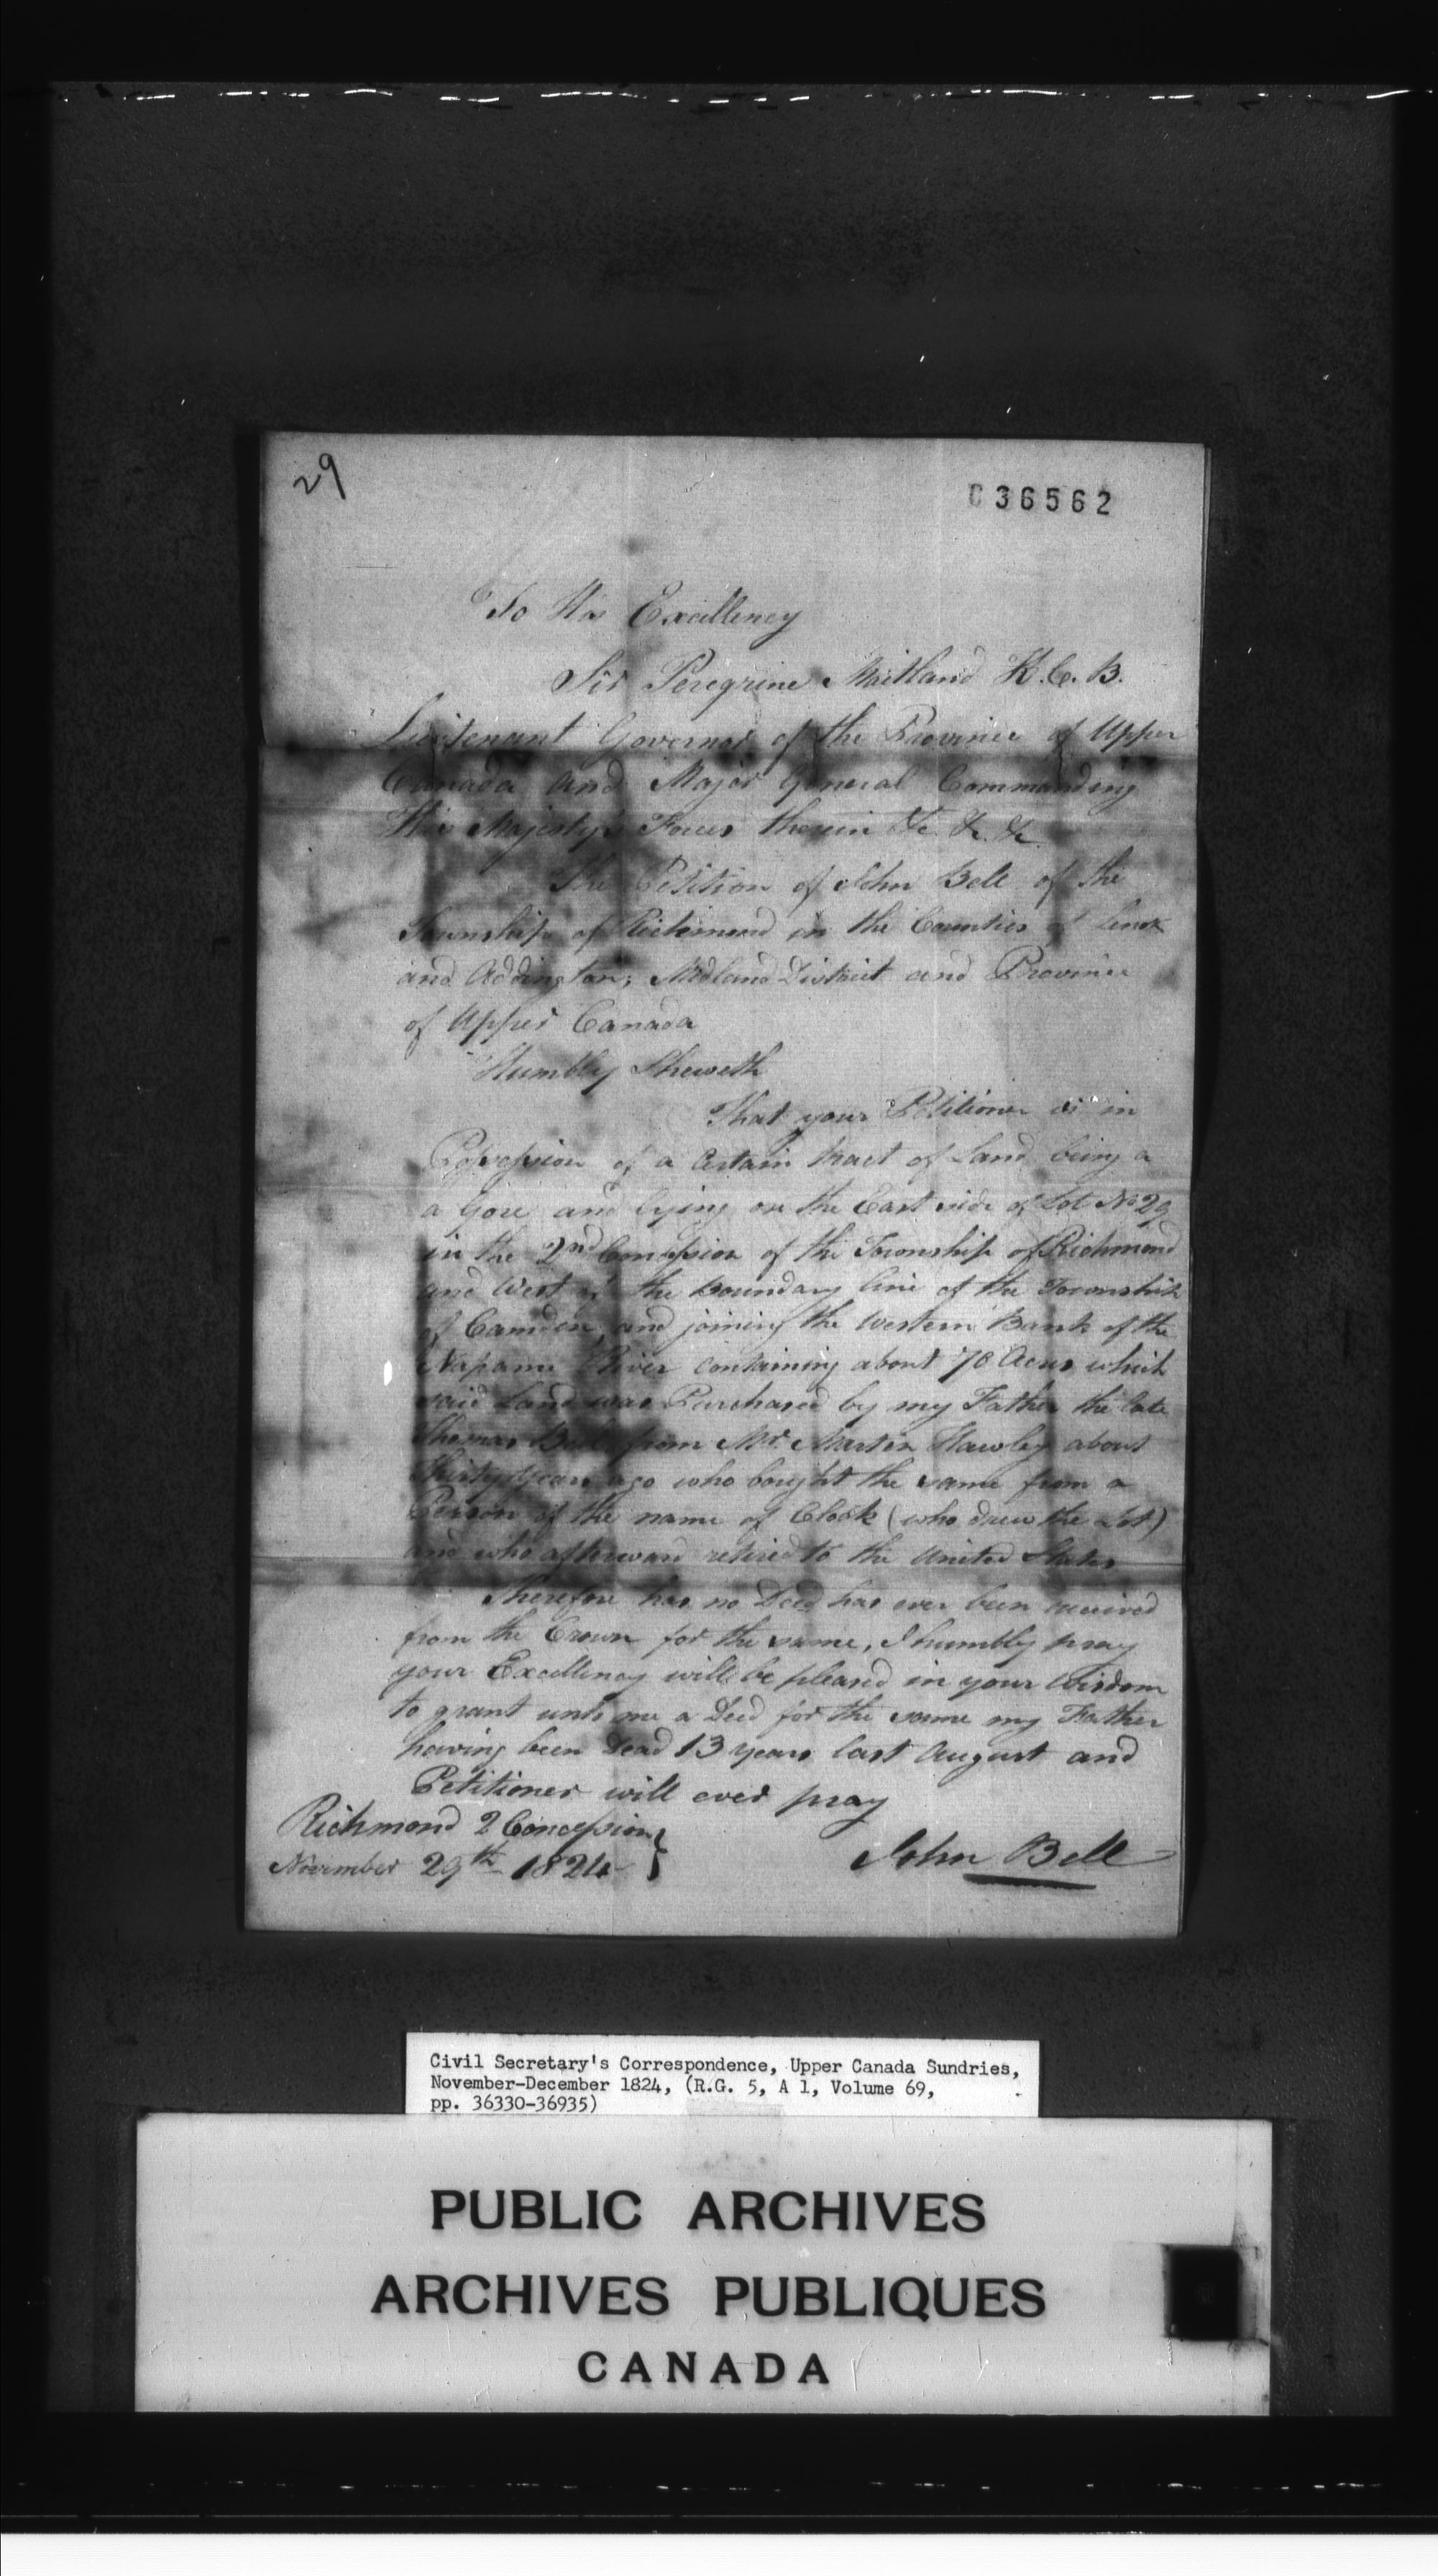 29
C36562
To His Excellency
Sir Peregrine Maitland K.C.B.
Lieutenant Governor of the Province of Upper
Canada and Major General Commanding
His Majesty's Forces therein &c. &c. &c.
The Petition of John Bell of the
Township of Richmond in the Counties of Lenox
and Addington; Midland District and Province
of Upper Canada
Humbly Sheweth
That your Petitioner is in
Possession of a Certain tract of Land being a
a Gore and lying on the East side of Lot No 29
in the 2nd Concession of the Township of Richmond
and West of the Boundary line of the Township
of Camden, and joining the Western Bank of the
Napanee River containing about 70 Acres which
said Land was Purchased by my Father the late
Thomas Bell from Mr. Martin Hawley about
Thirty years ago who bought the same from a
Person of the name of Clock (who drew the Lot)
and who afterward retired to the United States
Therefore has no Deed has ever been received
from the Crown for the same, I humbly pray
your Excellency will be pleased in your Wisdom
to grant unto me a Deed for the same my Father
having been Dead 13 years last August and
Petitioner will ever pray
Richmond 2 Concession }
November 29th 1824
John Bell
Civil Secretary's Correspondence, Upper Canada Sundries,
November-December 1824, (R.G. 5, A 1, Volume 69,
pp. 36330-36935)
PUBLIC ARCHIVES
ARCHIVES PUBLIQUES
CANADA